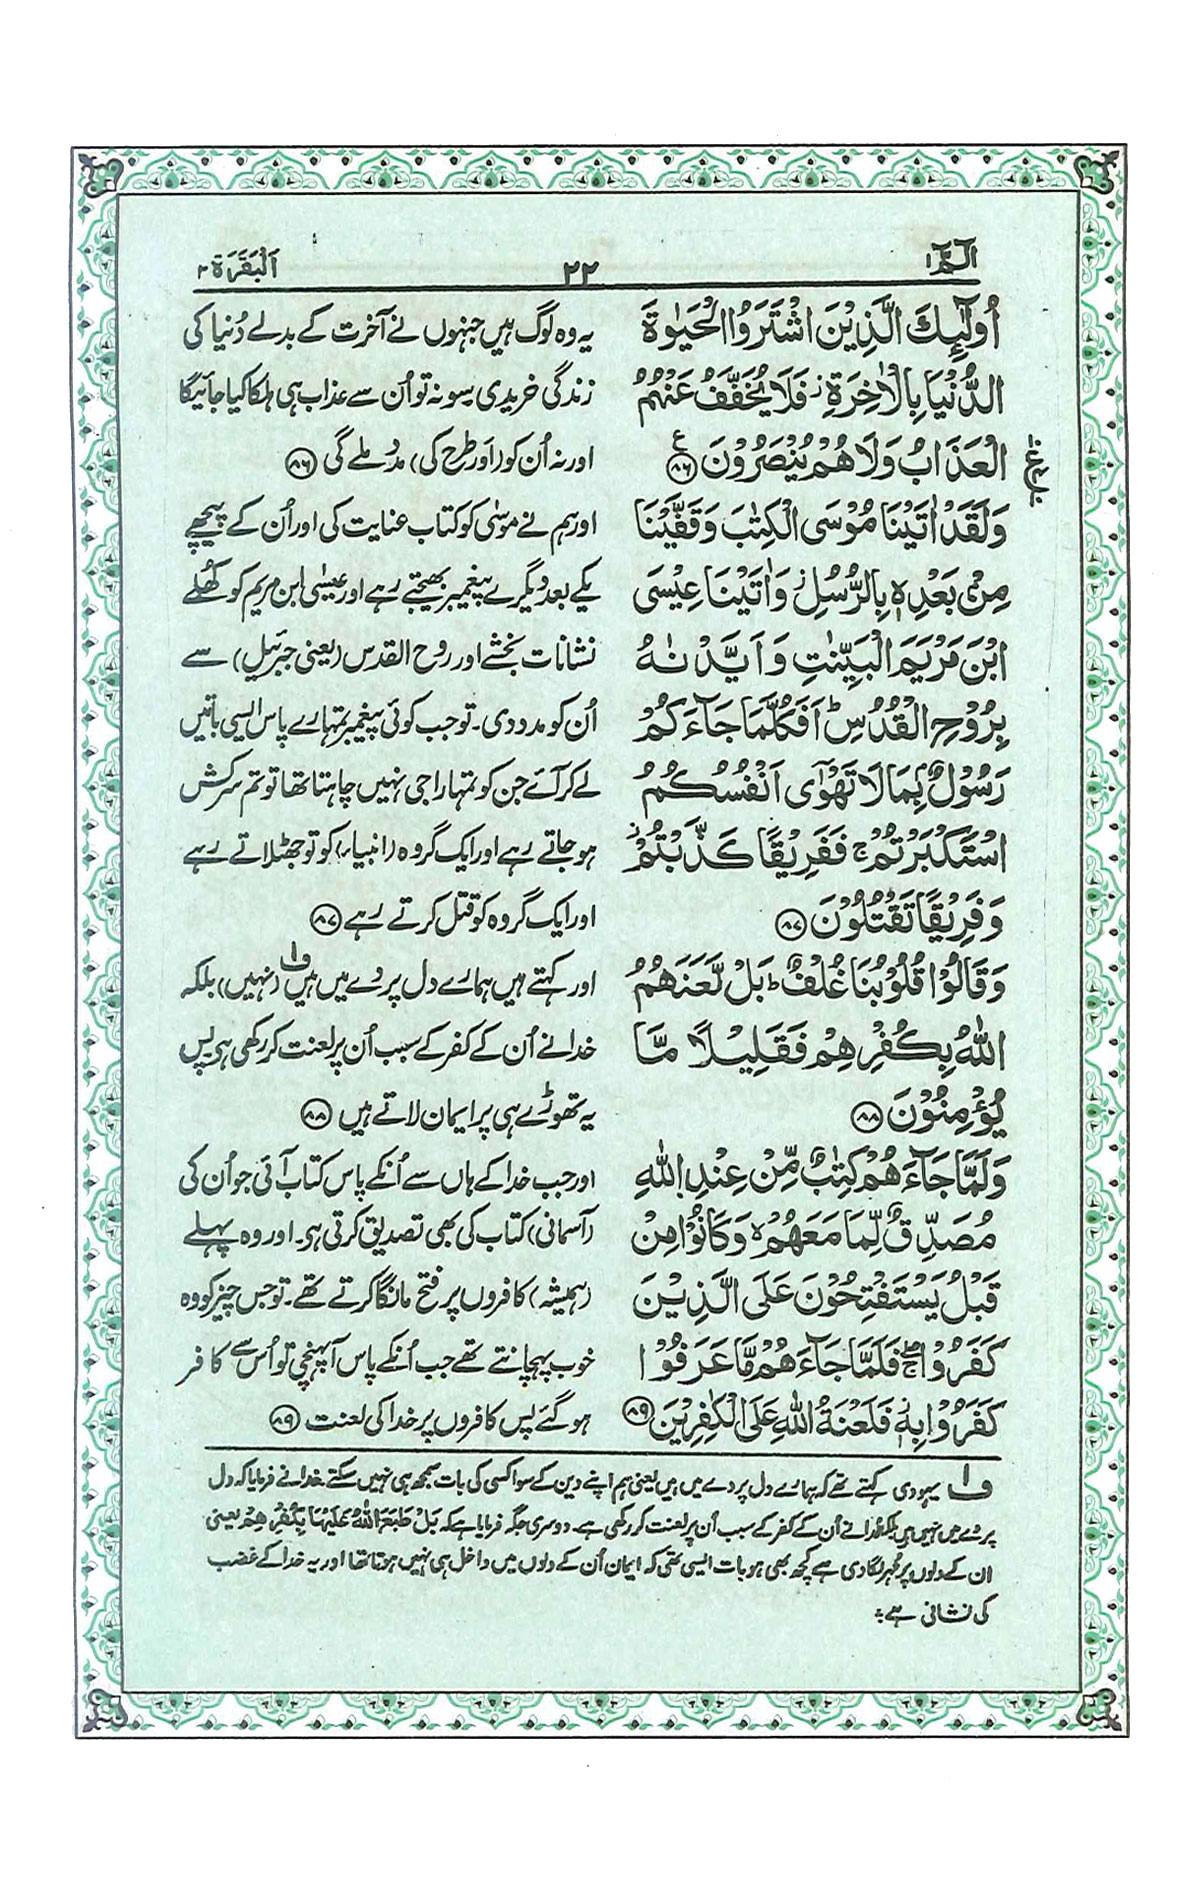 الٓمّٓ ۱
۲۲
اَلْبَقَرَة ۲
اُولٰٓئِكَ الَّذِيْنَ اشْتَرَوُا الْحَيٰوةَ
الدُّنْيَا بِالْاٰخِرَةِ ز فَلَا يُخَفَّفُ عَنْهُمُ
الْعَذَابُ وَلَا هُمْ يُنْصَرُوْنَ ﴿۸۶﴾ ع
وَلَقَدْ اٰتَيْنَا مُوْسَى الْكِتٰبَ وَقَفَّيْنَا
مِنْۢ بَعْدِهٖ بِالرُّسُلِ ز وَاٰتَيْنَا عِيْسَى
ابْنَ مَرْيَمَ الْبَيِّنٰتِ وَاَيَّدْنٰهُ
بِرُوْحِ الْقُدُسِ ط اَفَكُلَّمَا جَآءَكُمْ
رَسُوْلٌۢ بِمَا لَا تَهْوٰٓى اَنْفُسُكُمُ
اسْتَكْبَرْتُمْ ج فَفَرِيْقًا كَذَّبْتُمْ ز
وَفَرِيْقًا تَقْتُلُوْنَ ﴿۸۷﴾
وَقَالُوْا قُلُوْبُنَا غُلْفٌ ط بَلْ لَّعَنَهُمُ
اللّٰهُ بِكُفْرِهِمْ فَقَلِيْلًا مَّا
يُؤْمِنُوْنَ ﴿۸۸﴾
وَلَمَّا جَآءَهُمْ كِتٰبٌ مِّنْ عِنْدِ اللّٰهِ
مُصَدِّقٌ لِّمَا مَعَهُمْ ۙ وَكَانُوْا مِنْ
قَبْلُ يَسْتَفْتِحُوْنَ عَلَى الَّذِيْنَ
كَفَرُوْا ۚ فَلَمَّا جَآءَهُمْ مَّا عَرَفُوْا
كَفَرُوْا بِهٖ ز فَلَعْنَةُ اللّٰهِ عَلَى الْكٰفِرِيْنَ ﴿۸۹﴾
یہ وہ لوگ ہیں جنہوں نے آخرت کے بدلے دُنیا کی
زندگی خریدی سو نہ تو اُن سے عذاب ہی ہلکا کیا جائیگا
اور نہ اُن کو (اور طرح کی) مدد ملے گی ﴿۸۶﴾
اور ہم نے موسٰی کو کتاب عنایت کی اور اُن کے پیچھے
یکے بعد دیگرے پیغمبر بھیجتے رہے اور عیسٰی ابن مریم کو کُھلے
نشانات بخشے اور روح القدس (یعنی جبرئیل) سے
اُن کو مدد دی۔ تو جب کوئی پیغمبر تمہارے پاس ایسی باتیں
لے کر آئے جن کو تمہارا جی نہیں چاہتا تھا تو تم سرکش
ہو جاتے رہے اور ایک گروہ (انبیاء) کو تو جھٹلاتے رہے
اور ایک گروہ کو قتل کرتے رہے ﴿۸۷﴾
اور کہتے ہیں ہمارے دل پردے میں ہیں ف۱ (نہیں) بلکہ
خدا نے اُن کے کفر کے سبب اُن پر لعنت کر رکھی ہی پس
یہ تھوڑے ہی پر ایمان لاتے ہیں ﴿۸۸﴾
اور جب خدا کے ہاں سے اُنکے پاس کتاب آئی جو اُن کی
(آسمانی) کتاب کی بھی تصدیق کرتی ہی۔ اور وہ پہلے
(ہمیشہ) کافروں پر فتح مانگا کرتے تھے۔ تو جس چیز کو وہ
خوب پہچانتے تھے جب اُنکے پاس آپہنچی تو اُس سے کافر
ہو گئے پس کافروں پر خدا کی لعنت ﴿۸۹﴾
ف۱ یہودی کہتے تھے کہ ہمارے دل پردے میں ہیں یعنی ہم اپنے دین کے سوا کسی کی بات سمجھ ہی نہیں سکتے خدا نے فرمایا کہ دل
پردے میں نہیں ہیں بلکہ خدا نے اُن کے کفر کے سبب اُن پر لعنت کر رکھی ہے۔ دوسری جگہ فرمایا ہے کہ بَلْ طَبَعَ اللّٰهُ عَلَيْهَا بِكُفْرِهِمْ یعنی
ان کے دلوں پر مُہر لگا دی ہے کچھ بھی ہو بات ایسی تھی کہ ایمان اُن کے دلوں میں داخل ہی نہیں ہوتا تھا اور یہ خدا کے غضب
کی نشانی ہے